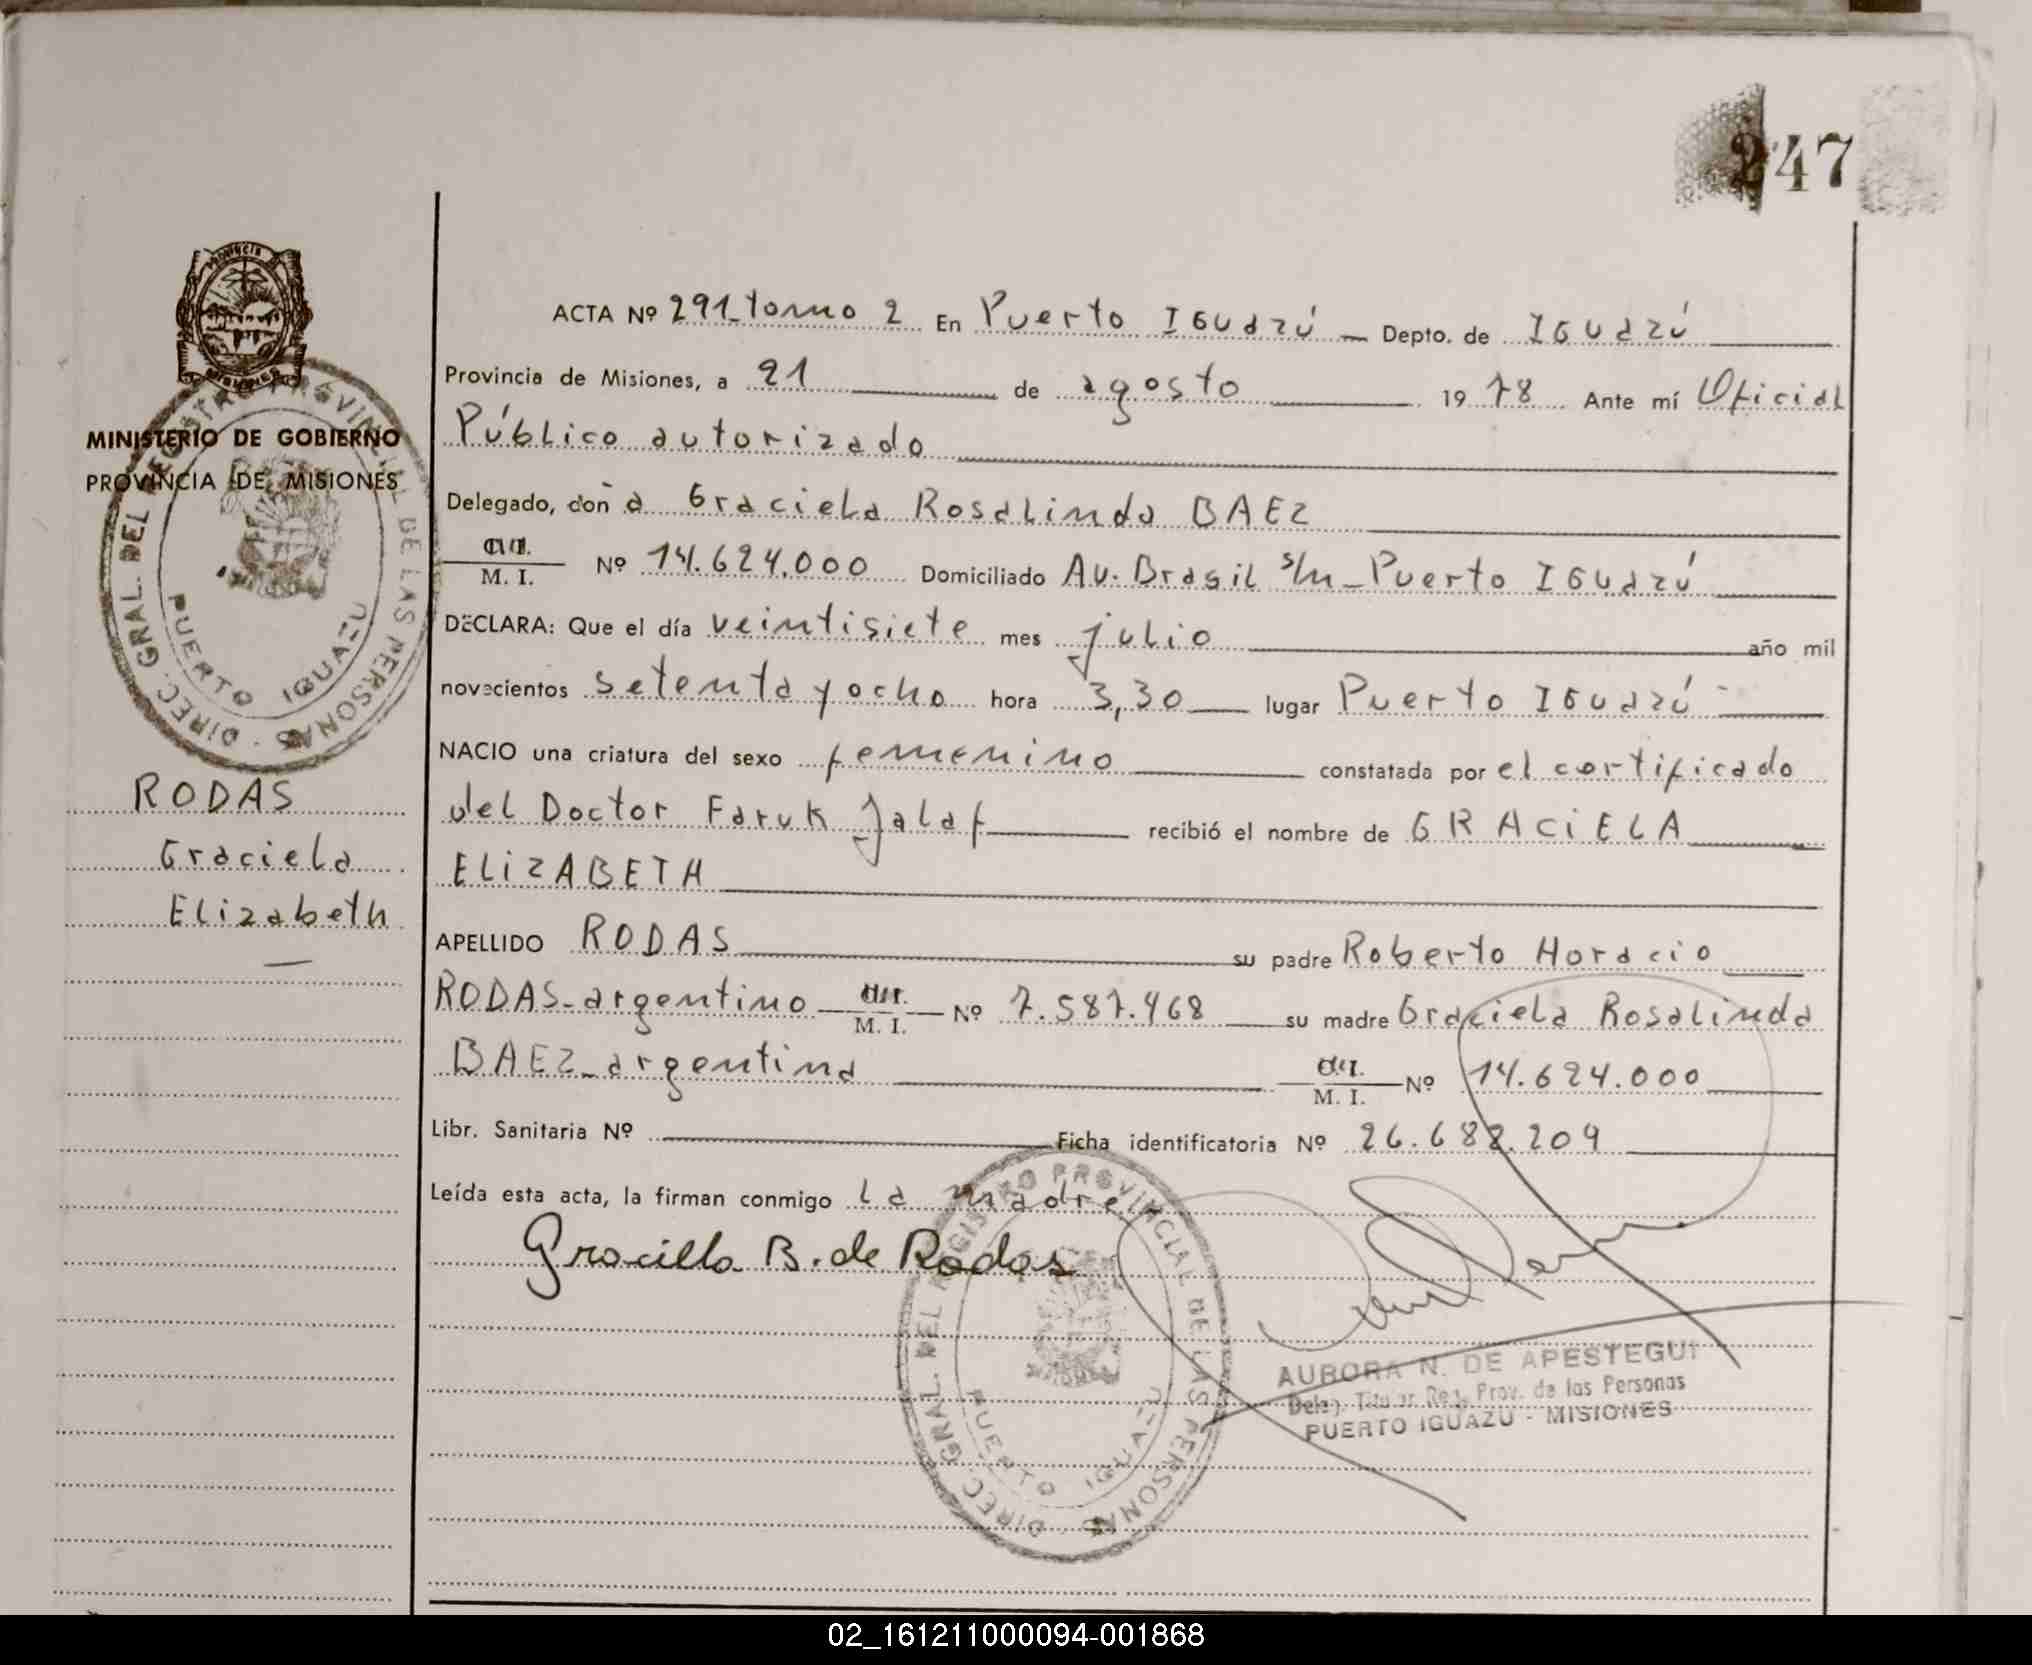 247
PROVINCIA
MISIONES
MINISTERIO DE GOBIERNO
PROVINCIA DE MISIONES
DIREC. GRAL. DEL REGISTRO PROVINCIAL DE LAS PERSONAS
PUERTO IGUAZU
RODAS
Graciela
Elizabeth
ACTA Nº 291 tomo 2 En Puerto IGUazú Depto. de IGUazú
Provincia de Misiones, a 21 de agosto 1978 Ante mí Oficial
Público autorizado
Delegado, doña Graciela Rosalinda BAEZ
M. I. Nº 14.624.000 Domiciliado Av. Brasil s/n - Puerto IGUazú
DECLARA: Que el día veintisiete mes julio año mil
novecientos setenta y ocho hora 3,30 lugar Puerto IGUazú
NACIO una criatura del sexo femenino constatada por el certificado
del Doctor Faruk Jalaf recibió el nombre de GRACIELA
ELIZABETH
APELLIDO RODAS su padre Roberto Horacio
RODAS - argentino M. I. Nº 7.587.468 su madre Graciela Rosalinda
BAEZ - argentina M. I. Nº 14.624.000
Libr. Sanitaria Nº Ficha identificatoria Nº 26.688.209
Leída esta acta, la firman conmigo la madre
Graciella B. de Rodas
DIREC. GRAL. DEL REGISTRO PROVINCIAL DE LAS PERSONAS
PUERTO IGUAZU
AURORA N. DE APESTEGUI
Deleg. Titular Reg. Prov. de las Personas
PUERTO IGUAZU - MISIONES
02_161211000094-001868